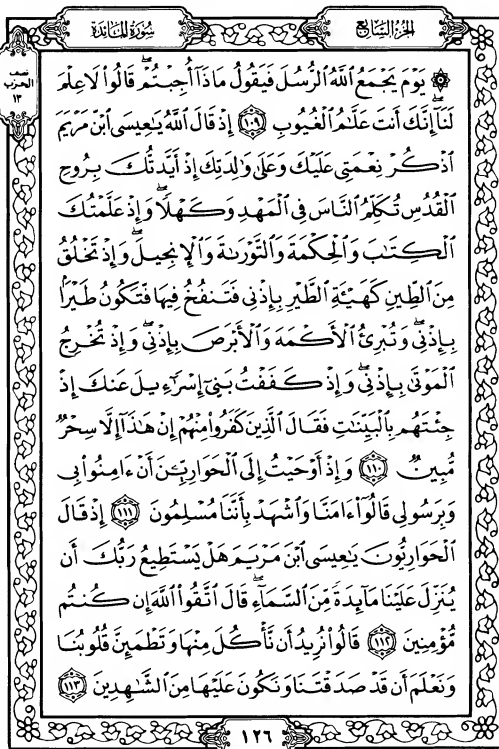 الجزء السابع
سُورَةُ المَائدة
نصف
الحزب
١٣
۞ يَوْمَ يَجْمَعُ ٱللَّهُ ٱلرُّسُلَ فَيَقُولُ مَاذَآ أُجِبْتُمْ ۖ قَالُوا۟ لَا عِلْمَ
لَنَآ ۖ إِنَّكَ أَنتَ عَلَّٰمُ ٱلْغُيُوبِ ۝١٠٩ إِذْ قَالَ ٱللَّهُ يَٰعِيسَى ٱبْنَ مَرْيَمَ
ٱذْكُرْ نِعْمَتِى عَلَيْكَ وَعَلَىٰ وَٰلِدَتِكَ إِذْ أَيَّدتُّكَ بِرُوحِ
ٱلْقُدُسِ تُكَلِّمُ ٱلنَّاسَ فِى ٱلْمَهْدِ وَكَهْلًا ۖ وَإِذْ عَلَّمْتُكَ
ٱلْكِتَٰبَ وَٱلْحِكْمَةَ وَٱلتَّوْرَىٰةَ وَٱلْإِنجِيلَ ۖ وَإِذْ تَخْلُقُ
مِنَ ٱلطِّينِ كَهَيْـَٔةِ ٱلطَّيْرِ بِإِذْنِى فَتَنفُخُ فِيهَا فَتَكُونُ طَيْرًۢا
بِإِذْنِى ۖ وَتُبْرِئُ ٱلْأَكْمَهَ وَٱلْأَبْرَصَ بِإِذْنِى ۖ وَإِذْ تُخْرِجُ
ٱلْمَوْتَىٰ بِإِذْنِى ۖ وَإِذْ كَفَفْتُ بَنِىٓ إِسْرَٰٓءِيلَ عَنكَ إِذْ
جِئْتَهُم بِٱلْبَيِّنَٰتِ فَقَالَ ٱلَّذِينَ كَفَرُوا۟ مِنْهُمْ إِنْ هَٰذَآ إِلَّا سِحْرٌ
مُّبِينٌ ۝١١٠ وَإِذْ أَوْحَيْتُ إِلَى ٱلْحَوَارِيِّـۧنَ أَنْ ءَامِنُوا۟ بِى
وَبِرَسُولِى قَالُوٓا۟ ءَامَنَّا وَٱشْهَدْ بِأَنَّنَا مُسْلِمُونَ ۝١١١ إِذْ قَالَ
ٱلْحَوَارِيُّونَ يَٰعِيسَى ٱبْنَ مَرْيَمَ هَلْ يَسْتَطِيعُ رَبُّكَ أَن
يُنَزِّلَ عَلَيْنَا مَآئِدَةً مِّنَ ٱلسَّمَآءِ ۖ قَالَ ٱتَّقُوا۟ ٱللَّهَ إِن كُنتُم
مُّؤْمِنِينَ ۝١١٢ قَالُوا۟ نُرِيدُ أَن نَّأْكُلَ مِنْهَا وَتَطْمَئِنَّ قُلُوبُنَا
وَنَعْلَمَ أَن قَدْ صَدَقْتَنَا وَنَكُونَ عَلَيْهَا مِنَ ٱلشَّٰهِدِينَ ۝١١٣
١٢٦